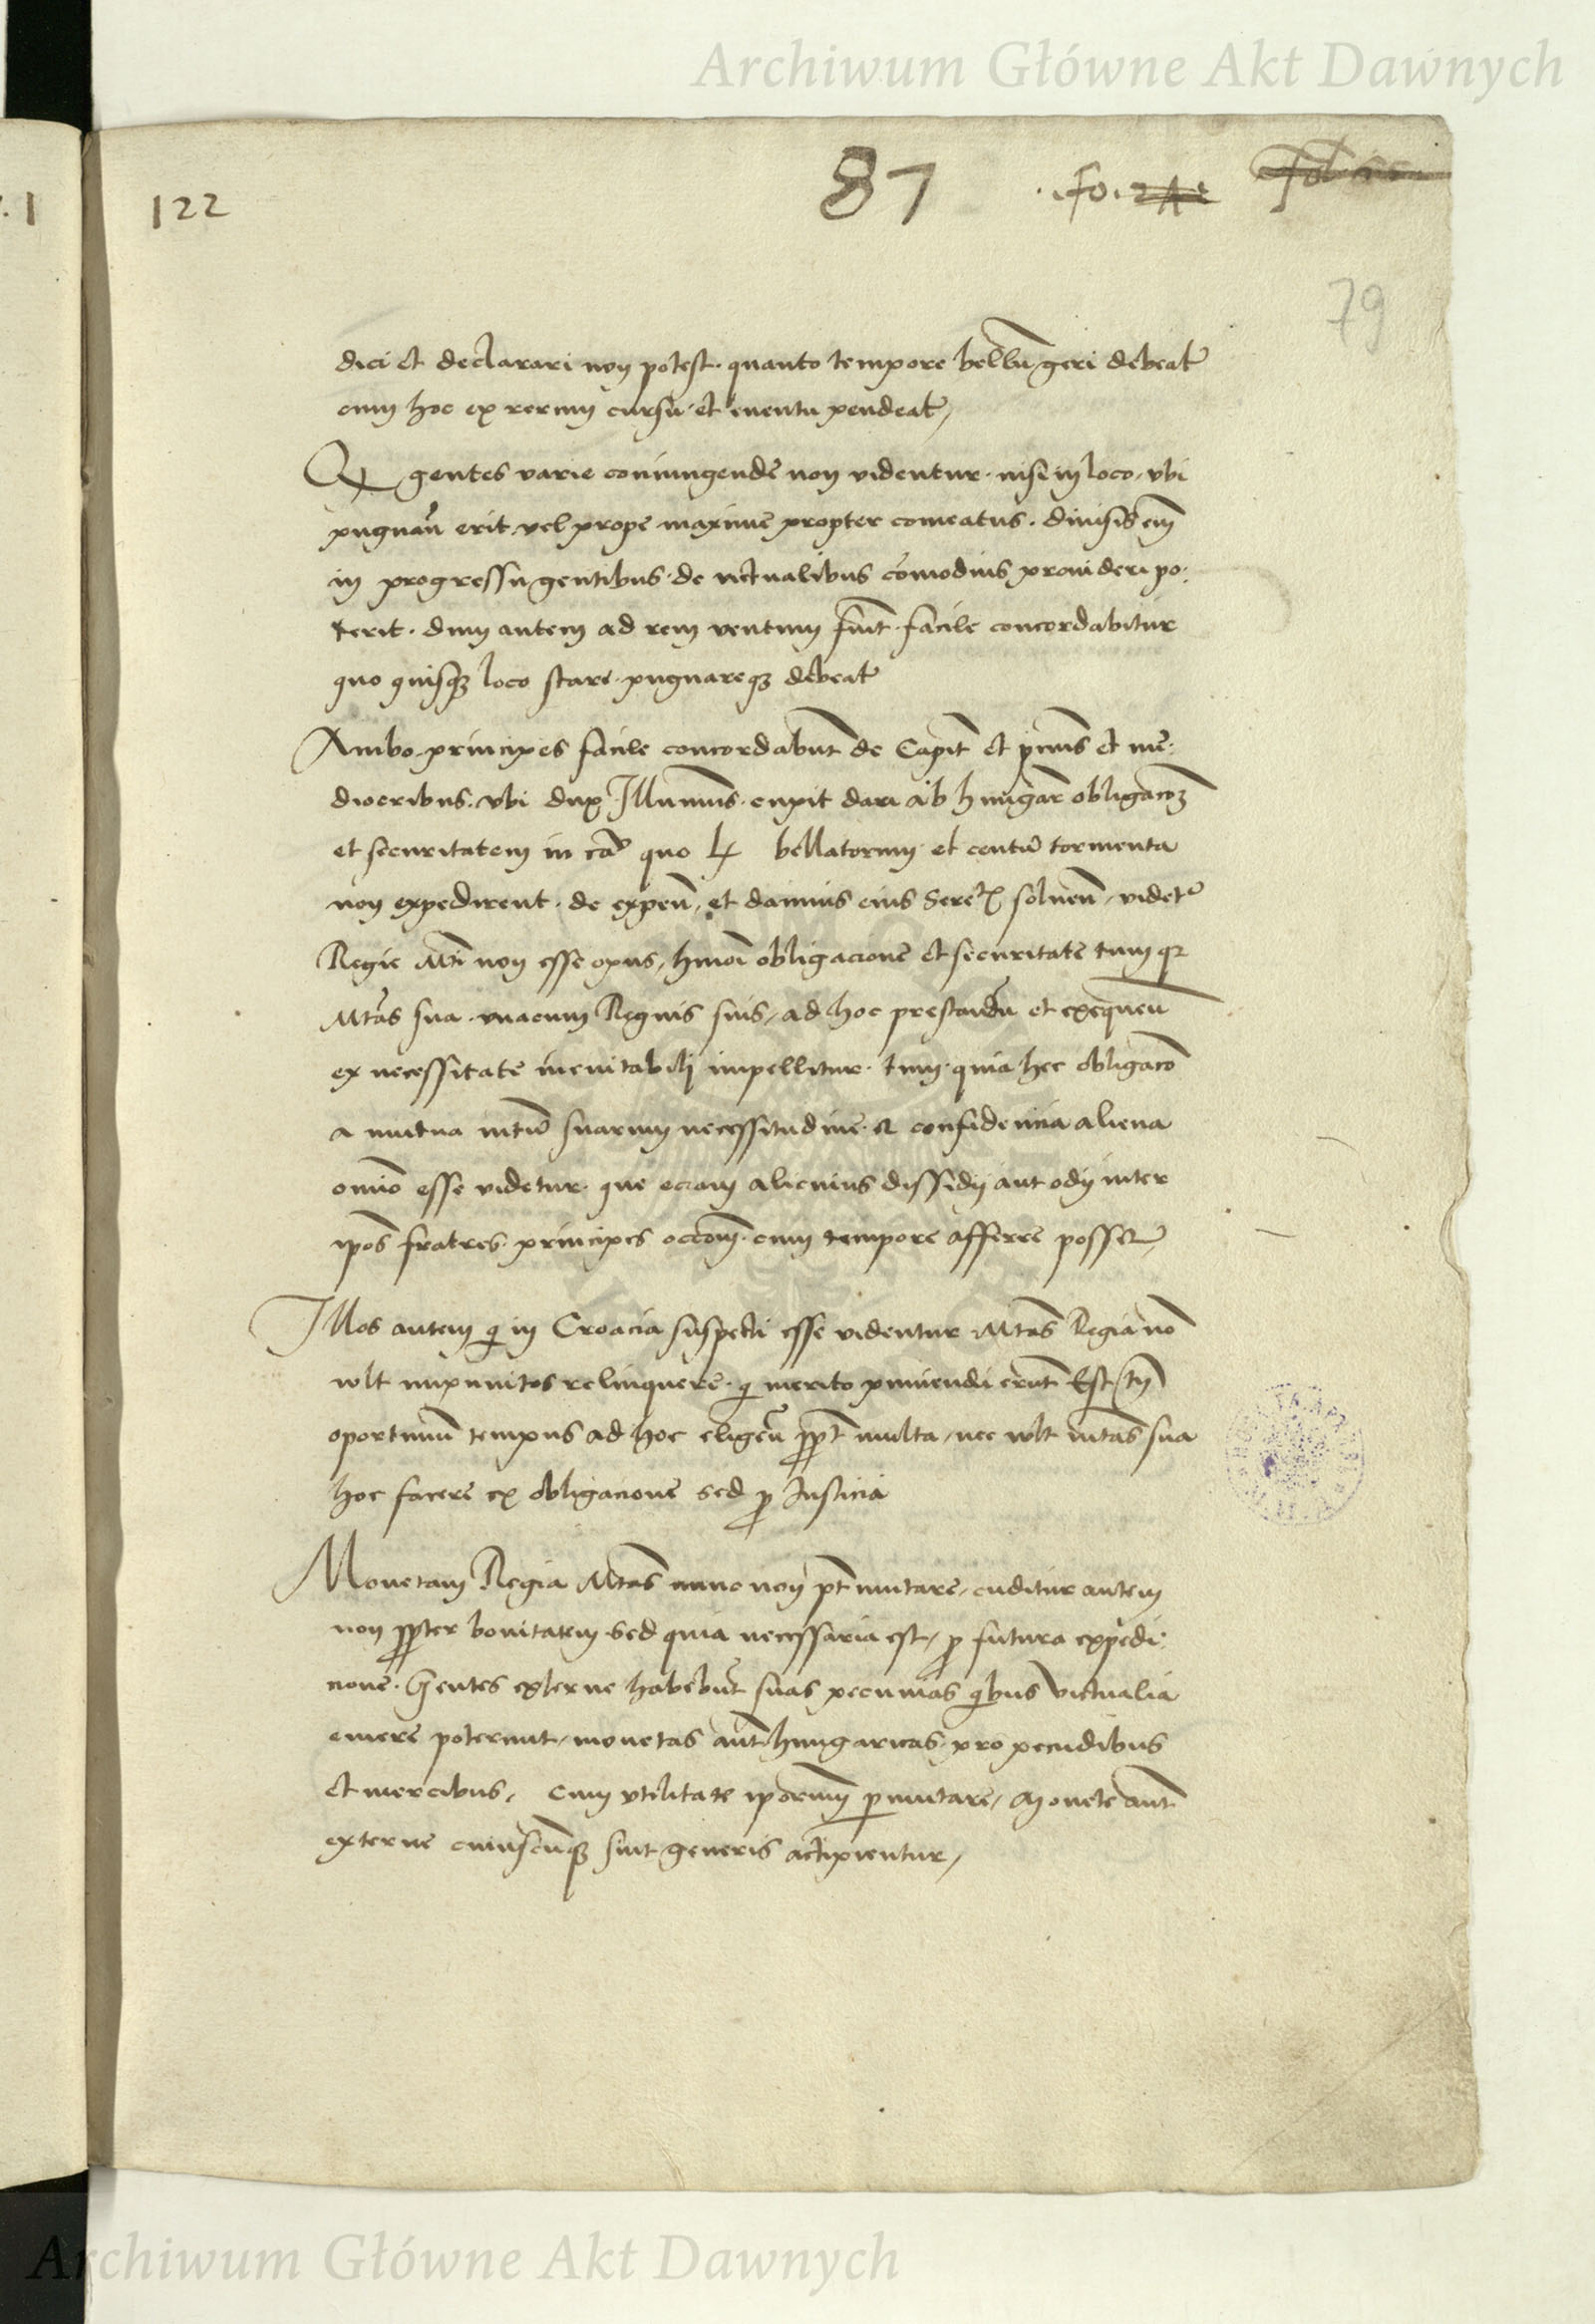 Archiwum Główne Akt Dawnych
122
87
fo.
79
dici et declarari non potest. quanto tempore bellũ geri debeat᷑
cum hoc ex rerum cursu. et euentu pendeat᷑,
Q gentes varie coniungendẽ non videntur. nisi in loco. vbi
pugnañ erit vel prope maxime propter comeatus. diuisis em̃
in progressu gentibus. de victualibus cõmodius prouideri po:
terit. dum autem ad rem ventum fuit̃. facile concordabitur
quo quisqꝫ loco stare. pugnareqꝫ debeat᷑
Ambo principes facile concordabũt de Capit̃ et p̃mis et me:
diocribus. vbi dux Illum̃us. cupit dari ab hungar̃ obligacõꝫ
et securitatem in cã quo bellatorum et centũ tormenta
non expedirent. de expen̄, et damnis eius Sereᵗꝭ soluen̄, videt᷑
Regie M̃ti non esse opus, hm̃oi obligacionẽ et securitatẽ tum qꝛ
M̃tas sua. vnacum Regnis suis, ad hoc prestandũ et exequeñ
ex necessitate ineuitabili impellitur. tum. quia hec obligacõ
a mutua m̃tũ suarum necessitudine. et confidencia aliena
om̃io esse videtur. que eciam alicuius dissidij aut odij inter
ip̃os fratres. principes occõm̃. cum tempore afferre posset,
Illos autem q̃ in Croacia suspecti esse videntur M̃tas Regia nõ
wlt impunitos relinquere. q̃ merito puniendi erũt Est tñ
oportunũ tempus ad hoc eligeñ ꝓpt̃ multa, nec wlt m̃tas sua
hoc facere ex obligacione sed ꝓ Iusticia
Monetam Regia M̃tas nunc non p̃t mutare, cuditur autem
non ꝓpter bonitatem. sed quia necessaria est, ꝓ futura expedi:
cione. Gentes externe habebũt suas pecunias q̃bus victualia
emere poterunt, monetas aũt hungaricas. pro pecudibus
et mercibus, cum vtilitate ip̃orum ꝑmutare, Monete aũt
externe cuiuscũqꝫ sint generis accipientur,
Archiwum Główne Akt Dawnych